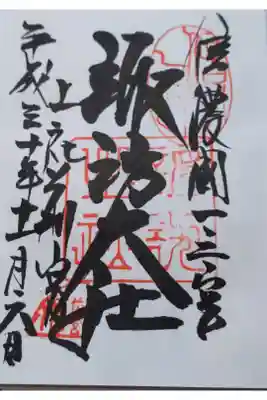 信濃國一之宮
諏訪大社
上社前宮
平成三十年十一月六日